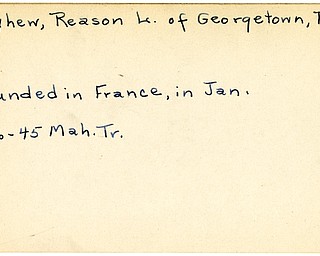 hew, Reason L. of Georgetown,
unded in France, in Jan.
-45 Mah. Tr.